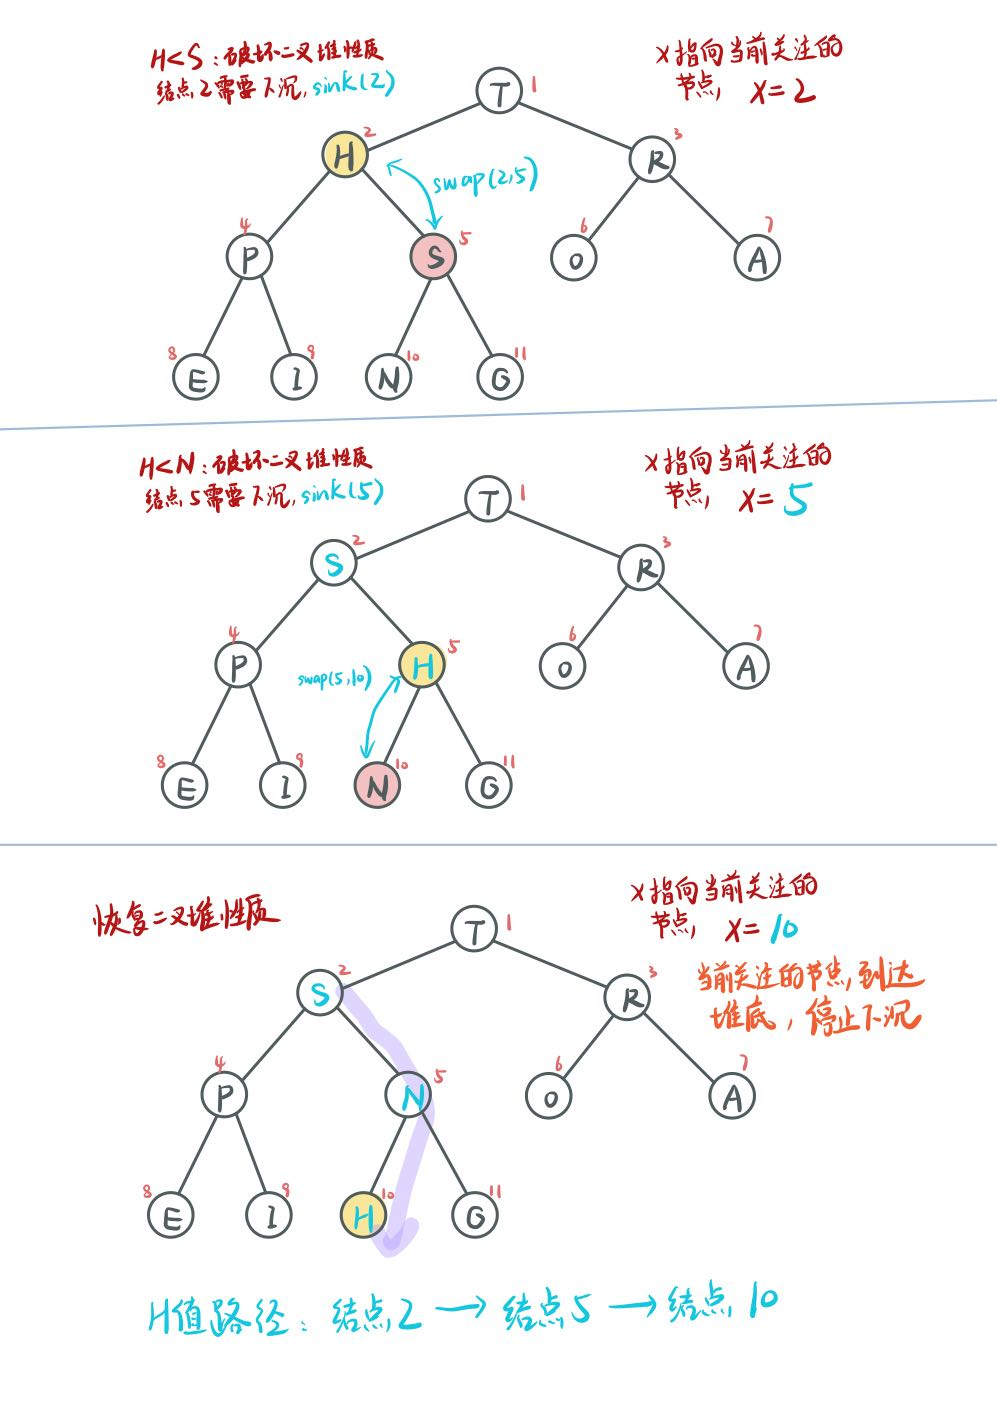 H<S：破坏二叉堆性质
结点2需要下沉,sink(2)
x指向当前关注的
节点, x=2
T 1
H 2
R 3
swap(2,5)
P 4
S 5
O 6
A 7
E 8
I 9
N 10
G 11
H<N：破坏二叉堆性质
结点5需要下沉,sink(5)
x指向当前关注的
节点, x=5
T 1
S 2
R 3
P 4
H 5
O 6
A 7
swap(5,10)
E 8
I 9
N 10
G 11
恢复二叉堆性质
x指向当前关注的
节点, x=10
当前关注的节点,到达
堆底，停止下沉
T 1
S 2
R 3
P 4
N 5
O 6
A 7
E 8
I 9
H 10
G 11
H值路径：结点2→结点5→结点10